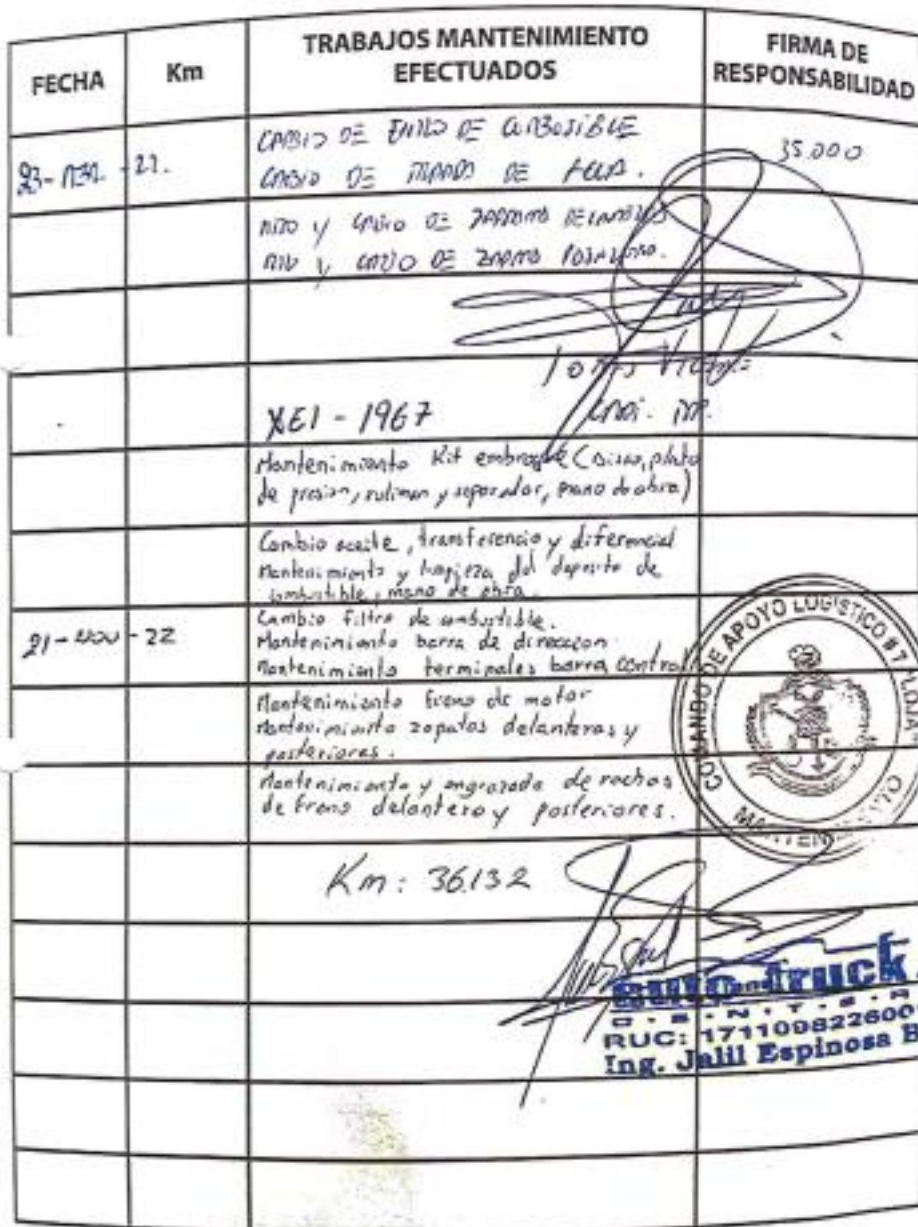 FECHA
Km
TRABAJOS MANTENIMIENTO
EFECTUADOS
FIRMA DE
RESPONSABILIDAD
CAMBIO DE FILTRO DE COMBUSTIBLE
35.000
CAMBIO DE DE AGUA.
Y CAMBIO DE ZAPATAS DELANTERAS
Y CAMBIO DE ZAPATAS
XEI - 1967
Mantenimiento Kit embrague (Disco, plato
de presion, ruliman y separador, mano de obra)
Cambio aceite, transferencia y diferencial
Mantenimiento y limpieza del deposito de
combustible, mano de obra
21-NOV-22
Cambio filtro de combustible.
Mantenimiento barra de direccion
Mantenimiento terminales barra control
Mantenimiento freno de motor
Mantenimiento zapatas delanteras y
posteriores.
Mantenimiento y engrasada de rachas
de freno delantero y posteriores.
COMANDO DE APOYO LOGISTICO # 7 "LOJA"
MANTENIMIENTO
Km: 36132
auto truck
C.E.N.T.E.R
RUC: 171109822600
Ing. Jalil Espinosa B